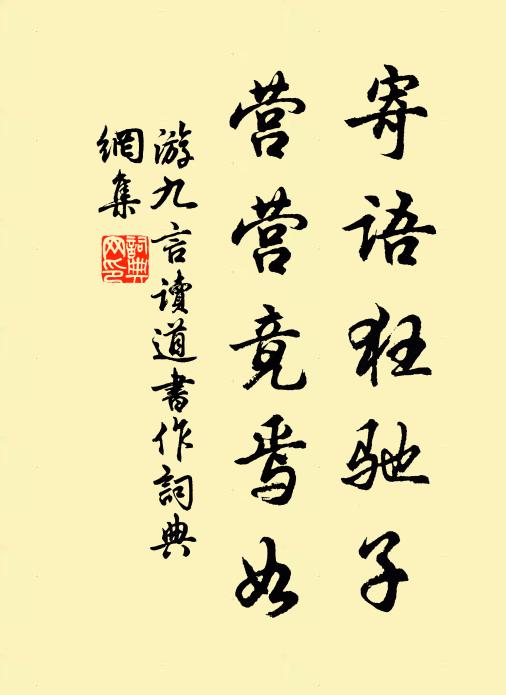 寄语狂驰子
营营竟焉如
游九言读道书作词典
网集
词典网印